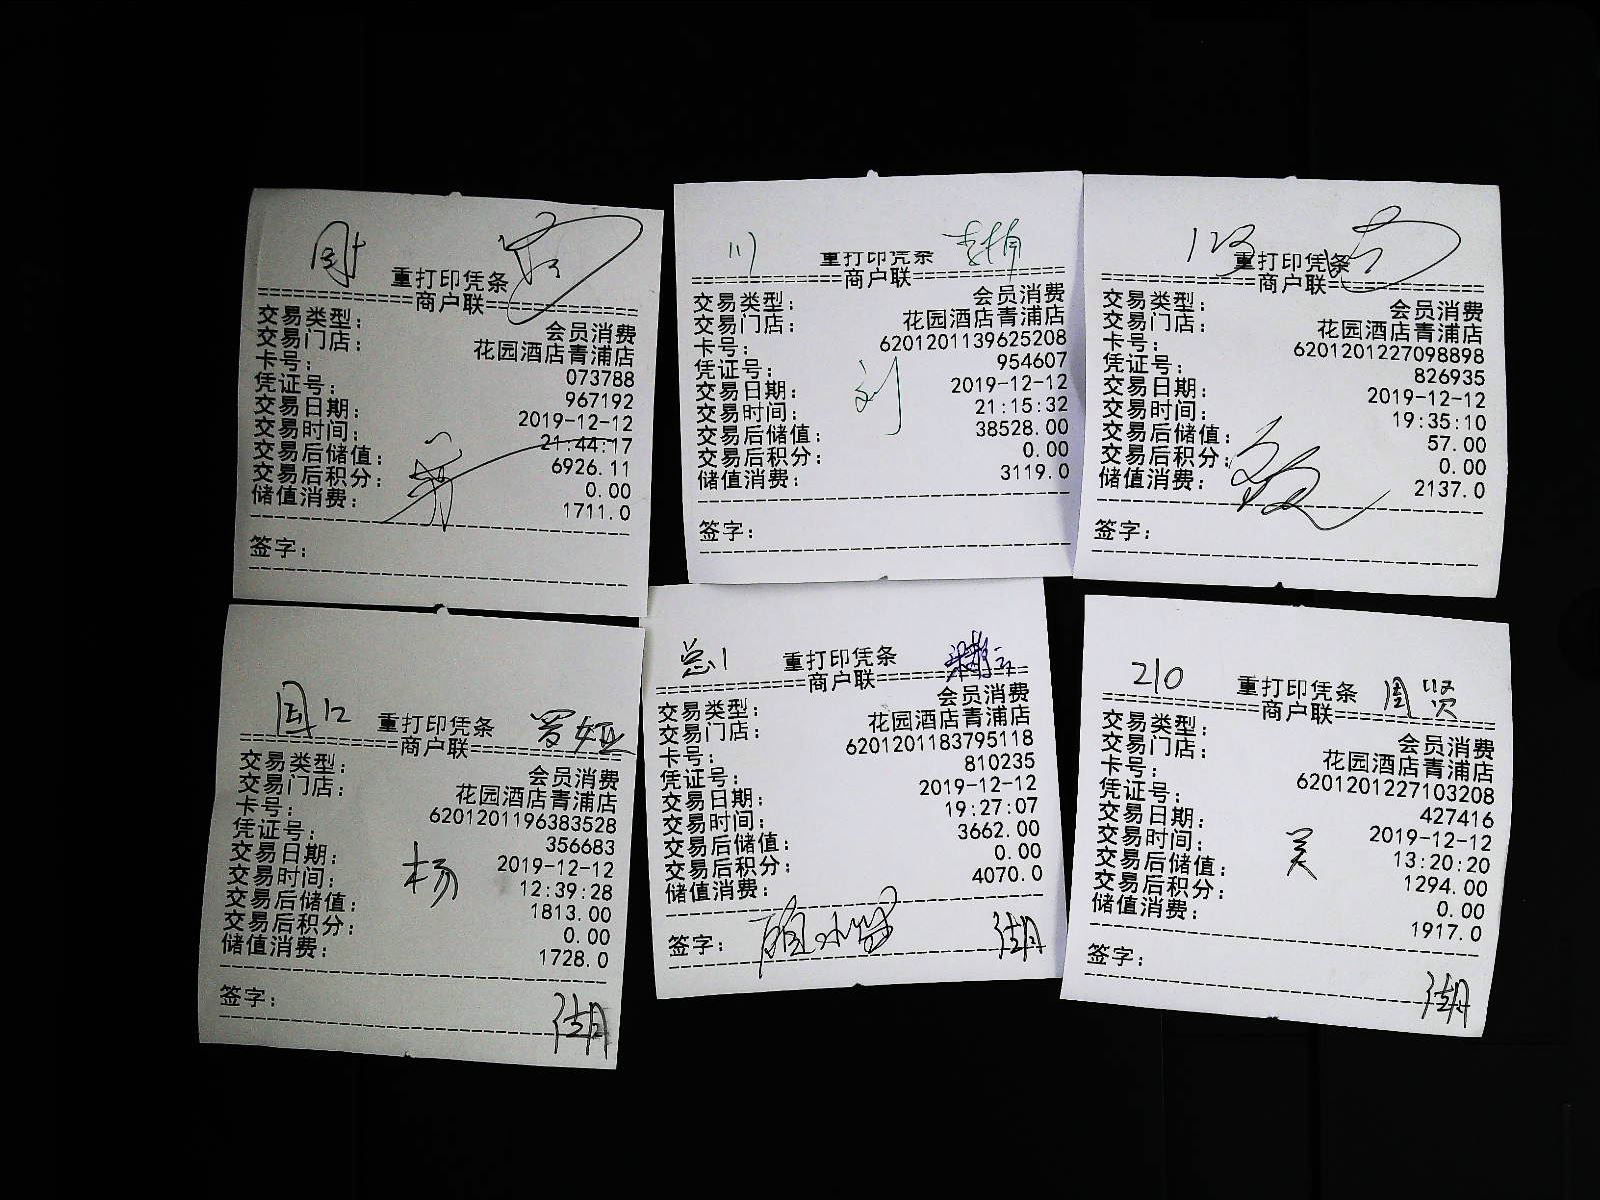 重打印凭条
商户联
交易类型: 会员消费
交易门店: 花园酒店青浦店
卡号: 073788
凭证号: 967192
交易日期: 2019-12-12
交易时间: 21:44:17
交易后储值: 6926.11
交易后积分: 0.00
储值消费: 1711.0
签字:
111
重打印凭条
商户联
交易类型: 会员消费
交易门店: 花园酒店青浦店
卡号: 6201201139625208
凭证号: 954607
交易日期: 2019-12-12
交易时间: 21:15:32
交易后储值: 38528.00
交易后积分: 0.00
储值消费: 3119.0
刘
签字:
123
重打印凭条
商户联
交易类型: 会员消费
交易门店: 花园酒店青浦店
卡号: 6201201227098898
凭证号: 826935
交易日期: 2019-12-12
交易时间: 19:35:10
交易后储值: 57.00
交易后积分: 0.00
储值消费: 2137.0
签字:
重打印凭条 罗娅
商户联
交易类型: 会员消费
交易门店: 花园酒店青浦店
卡号: 6201201196383528
凭证号: 356683
交易日期: 2019-12-12
交易时间: 12:39:28
交易后储值: 1813.00
交易后积分: 0.00
储值消费: 1728.0
杨
签字:
总1 重打印凭条
商户联
交易类型: 会员消费
交易门店: 花园酒店青浦店
卡号: 6201201183795118
凭证号: 810235
交易日期: 2019-12-12
交易时间: 19:27:07
交易后储值: 3662.00
交易后积分: 0.00
储值消费: 4070.0
签字:
210 重打印凭条 周贤
商户联
交易类型: 会员消费
交易门店: 花园酒店青浦店
卡号: 6201201227103208
凭证号: 427416
交易日期: 2019-12-12
交易时间: 13:20:20
交易后储值: 1294.00
交易后积分: 0.00
储值消费: 1917.0
吴
签字: